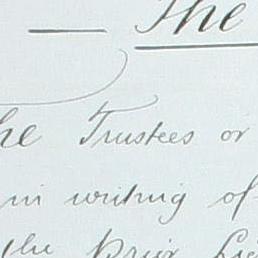 The
he Trustees or
in writing of
the prior Li